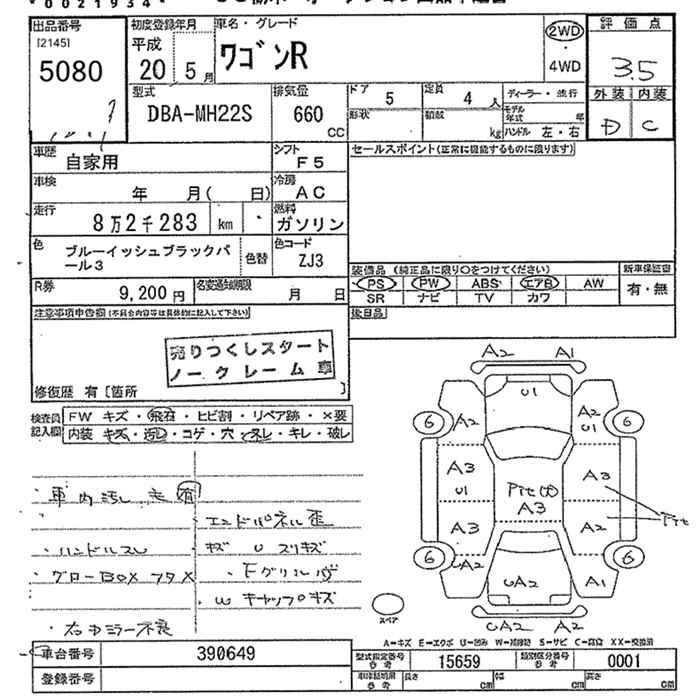 * 0 0 2 1 9 3 4 *
出品番号
[2145]
5080
初度登録年月
平成
20 5月
車名・グレード
ワゴンR
2WD
・
4WD
評価点
3.5
外装 内装
D C
型式
DBA-MH22S
排気量
660
CC
ドア
5
定員
4 人
形状
積載
kg
ディーラー・並行
モデル年式 年
ハンドル 左・右
車歴 自家用
シフト F5
車検 年 月( 日)
冷房 AC
走行 8万2千283 km
燃料 ガソリン
色 ブルーイッシュブラックパール3
色替
色コード ZJ3
R券 9,200円
名変通知期限 月 日
セールスポイント(正常に機能するものに限ります)
装備品 (純正品に限り○をつけてください)
PS PW ABS エアB AW
SR ナビ TV カワ
新車保証書
有・無
後日品
注意事項申告欄(不具合内容等は具体的に記入して下さい)
売りつくしスタート
ノークレーム車
修復歴 有 [箇所 ]
検査員記入欄
FW キズ・飛石・ヒビ割・リペア跡・×要
内装 キズ・汚レ・コゲ・穴・スレ・キレ・破レ
・車内汚レ 大 有
・ハンドルスレ
・グローBOX フタ X
・右ドミラー不良
・エンドパネル歪
キズ U スリキズ
・Fグリル
W キャップ キズ
A2 A1
U1
6 A2
A2 U1 6
A3 U1
Pit
A3
A3
Pit
A3
A2
6 UA2
UA2
A1 6
UA2 A2
スペア
A−キズ E−エクボ U−凹み W−補修跡 S−サビ C−腐食 XX−交換済
車台番号 390649
登録番号
型式指定番号 参考 15659
類別区分番号 参考 0001
車体結明有 参考
長さ cm
幅 cm
高さ cm